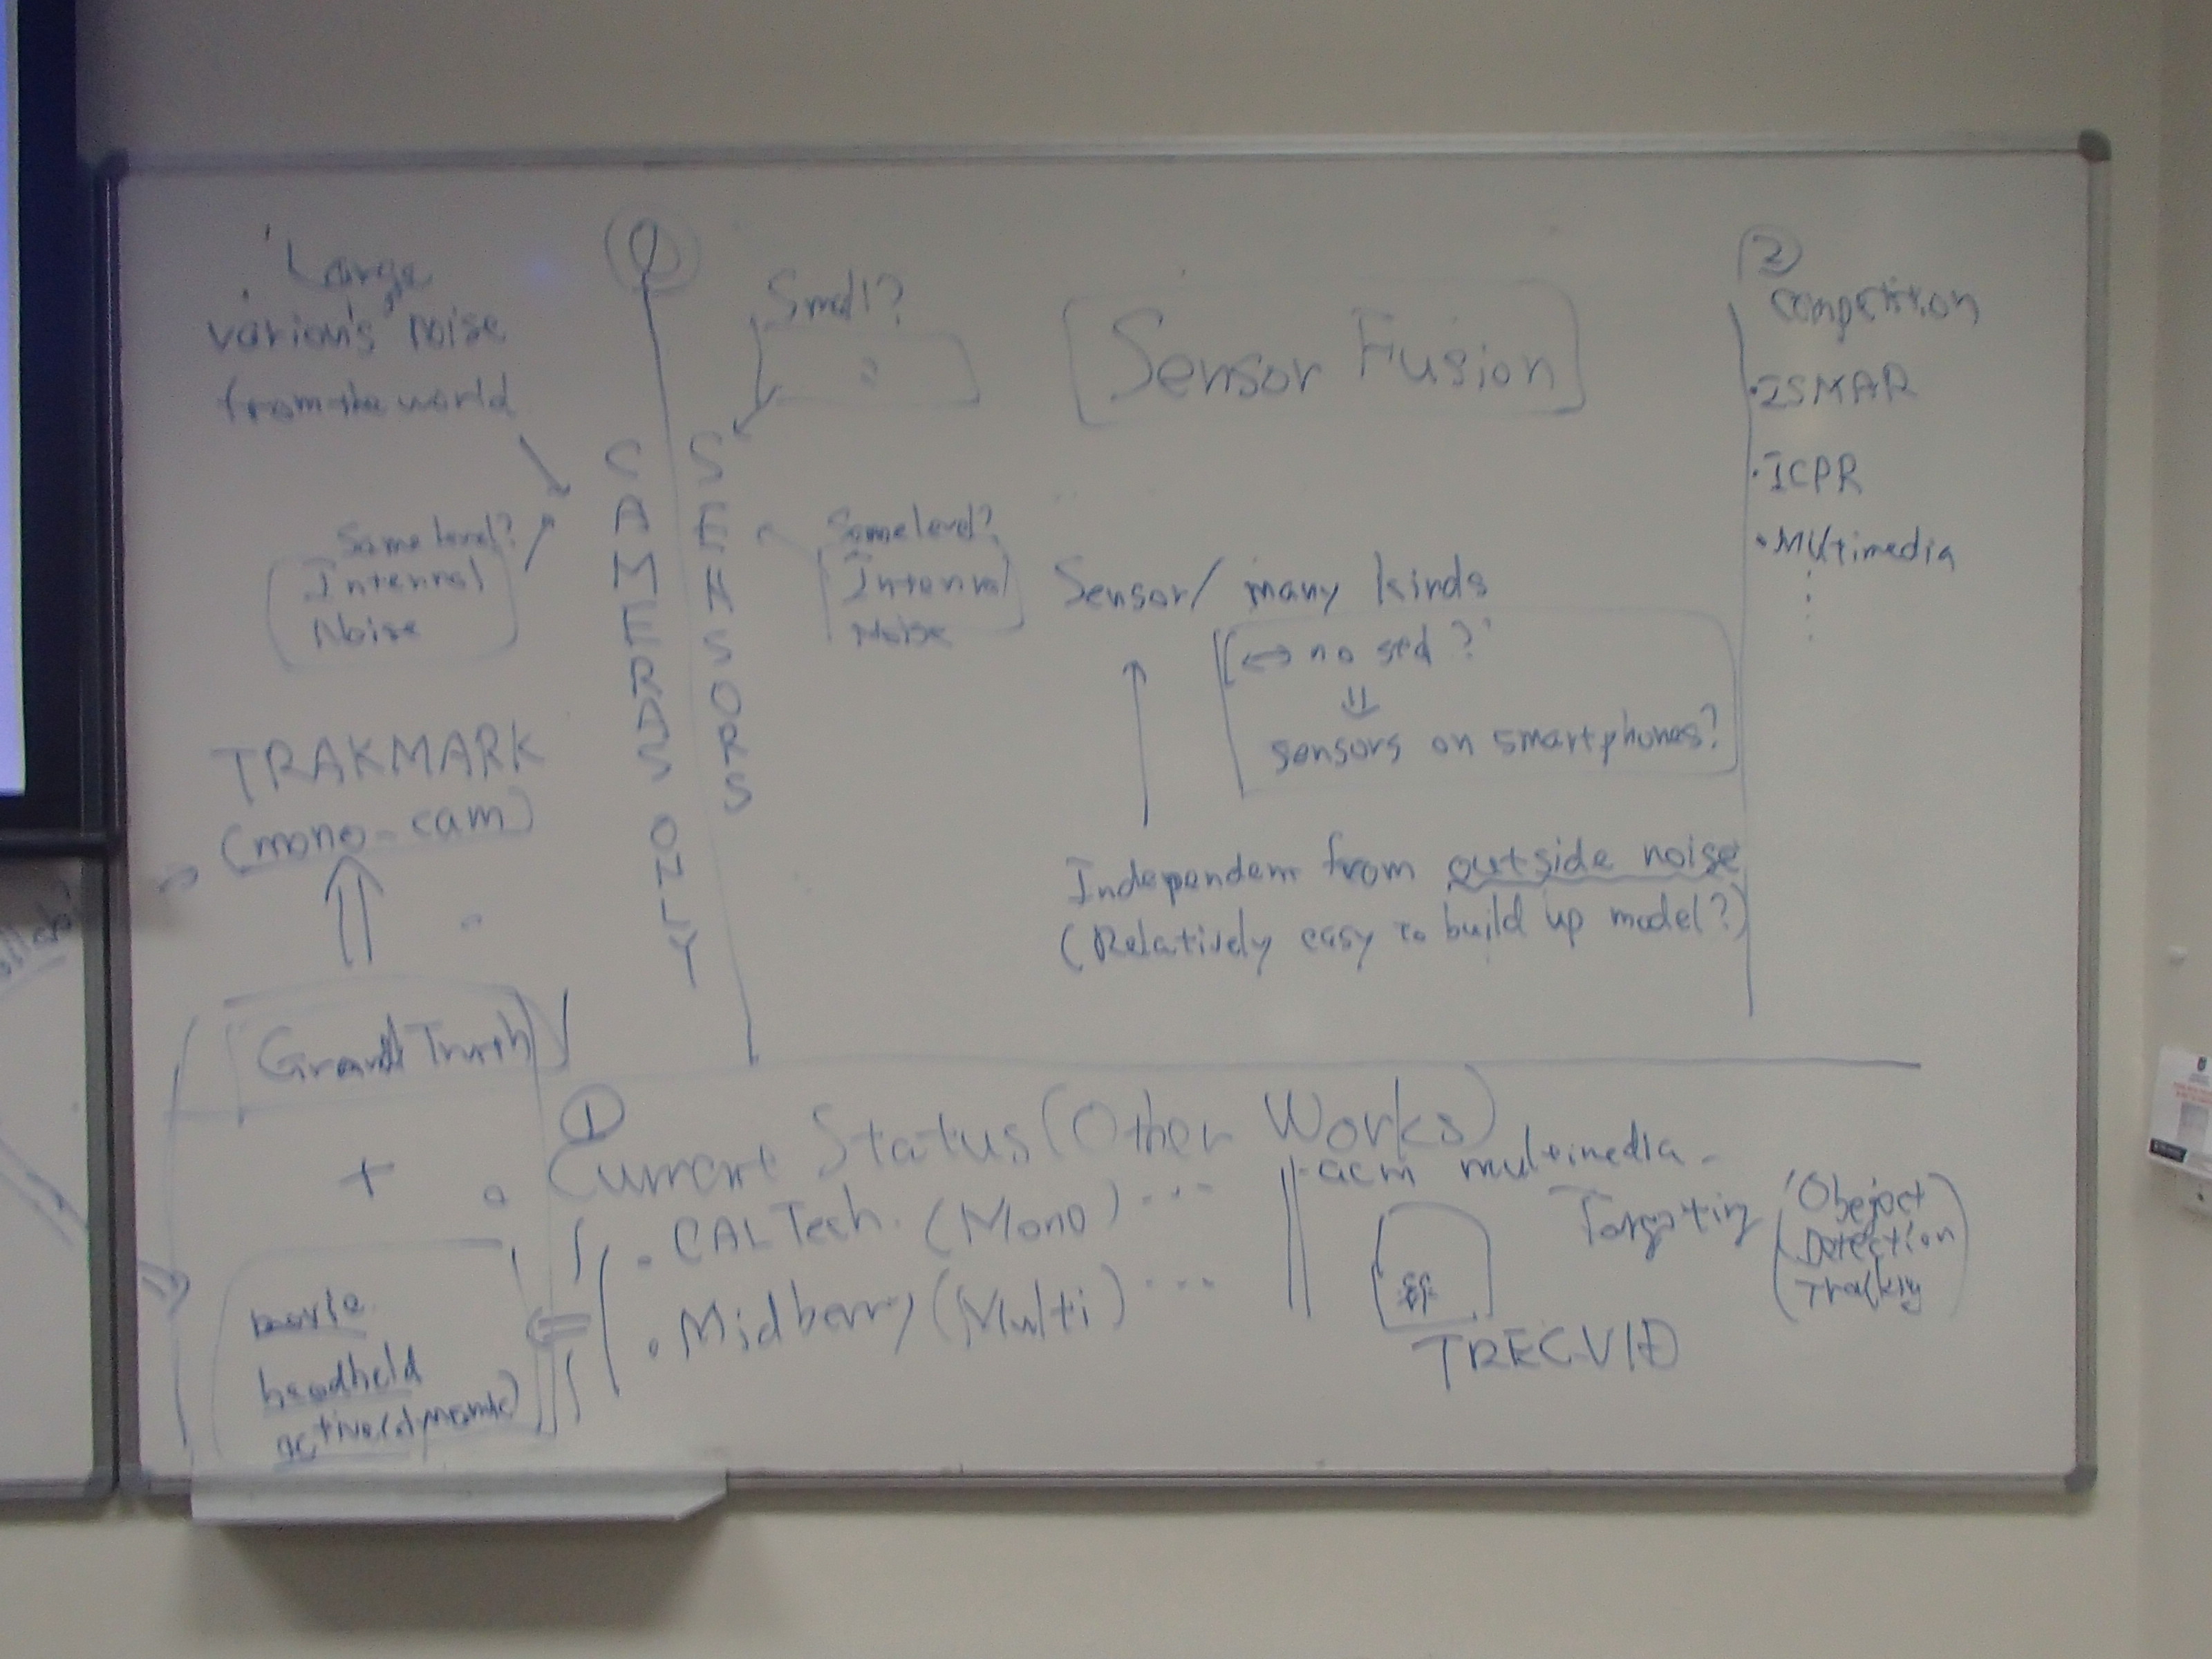 Large
various noise
from the world
Same level?
Internal
Noise
TRAKMARK
(mono-cam)
Ground Truth
+
movie
handheld
active(dynamic)
CAMERAS ONLY
SENSORS
Small?
?
Same level?
Internal
Noise
[Sensor Fusion]
Sensor/ many kinds
↔ no std?
⇓
sensors on smartphones?
Independent from outside noise
(Relatively easy to build up model?)
②
competition
・ISMAR
・ICPR
・Multimedia
①
Current Status (Other Works)
・CALTech. (Mono) ...
・Midberry (Multi) ...
・acm multimedia -
Targeting
Obeject
Detection
Tracking
TRECVID